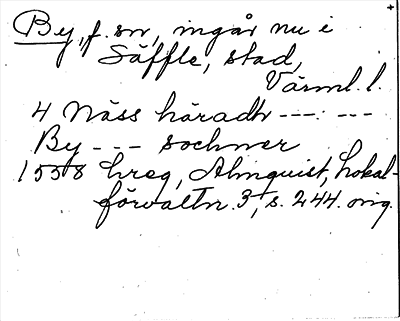 By, f. sn, ingår nu i
Säffle, stad,
Värml. l.
4 Näss häradh --- ---
By --- sochner
1558 hreg, Almquist, Lokal-
förvaltn. 3, s. 244. orig.